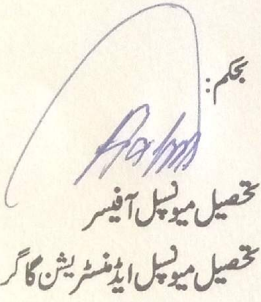 بحکم:
تحصیل میونسپل آفیسر
تحصیل میونسپل ایڈمنسٹریشن گاگر